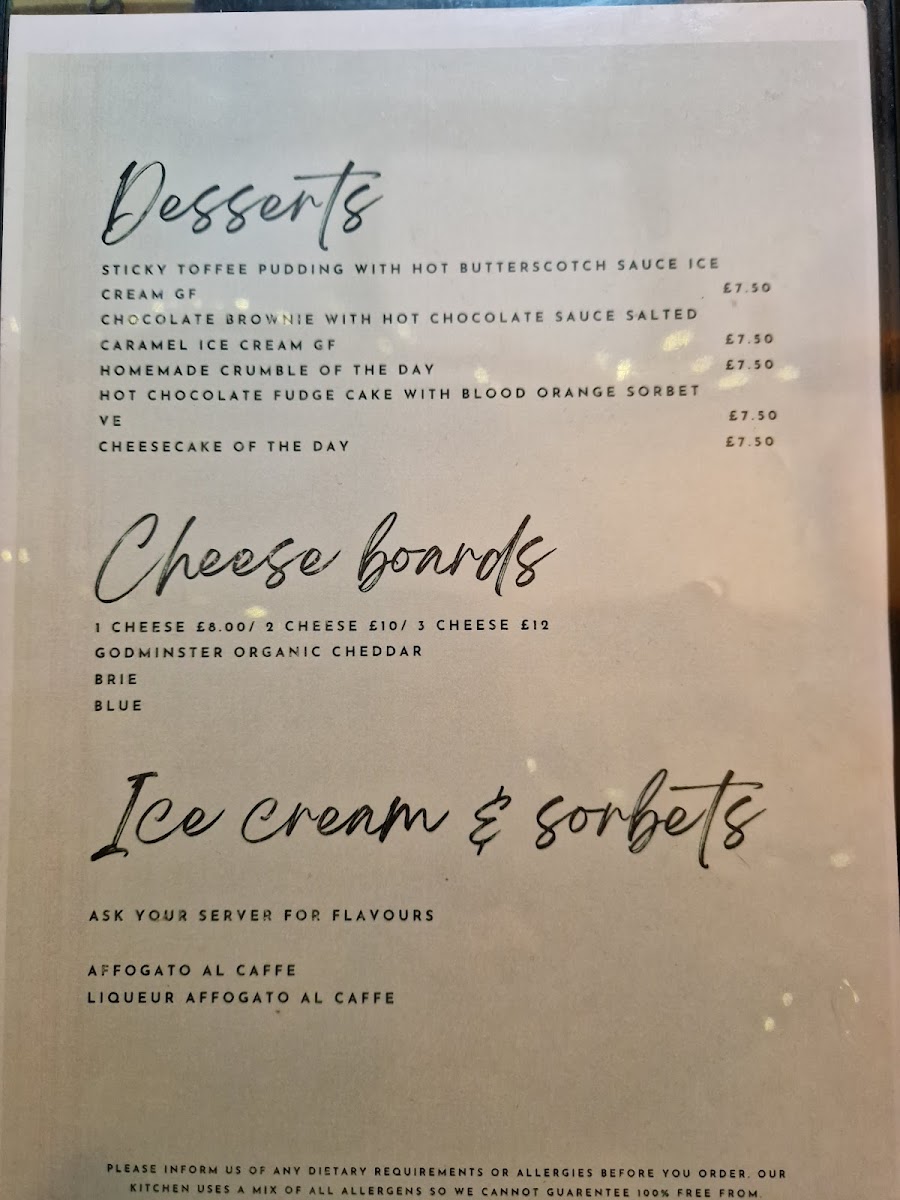 Desserts
STICKY TOFFEE PUDDING WITH HOT BUTTERSCOTCH SAUCE ICE
CREAM GF £7.50
CHOCOLATE BROWNIE WITH HOT CHOCOLATE SAUCE SALTED
CARAMEL ICE CREAM GF £7.50
HOMEMADE CRUMBLE OF THE DAY £7.50
HOT CHOCOLATE FUDGE CAKE WITH BLOOD ORANGE SORBET
VE £7.50
CHEESECAKE OF THE DAY £7.50
Cheese boards
1 CHEESE £8.00/ 2 CHEESE £10/ 3 CHEESE £12
GODMINSTER ORGANIC CHEDDAR
BRIE
BLUE
Ice cream & sorbets
ASK YOUR SERVER FOR FLAVOURS
AFFOGATO AL CAFFE
LIQUEUR AFFOGATO AL CAFFE
PLEASE INFORM US OF ANY DIETARY REQUIREMENTS OR ALLERGIES BEFORE YOU ORDER. OUR
KITCHEN USES A MIX OF ALL ALLERGENS SO WE CANNOT GUARENTEE 100% FREE FROM.